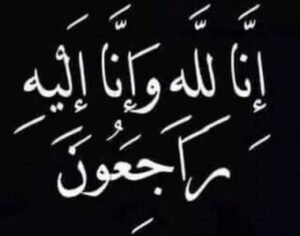 إِنَّا لِلّٰهِ وَإِنَّا إِلَيْهِ
رَاجِعُونَ